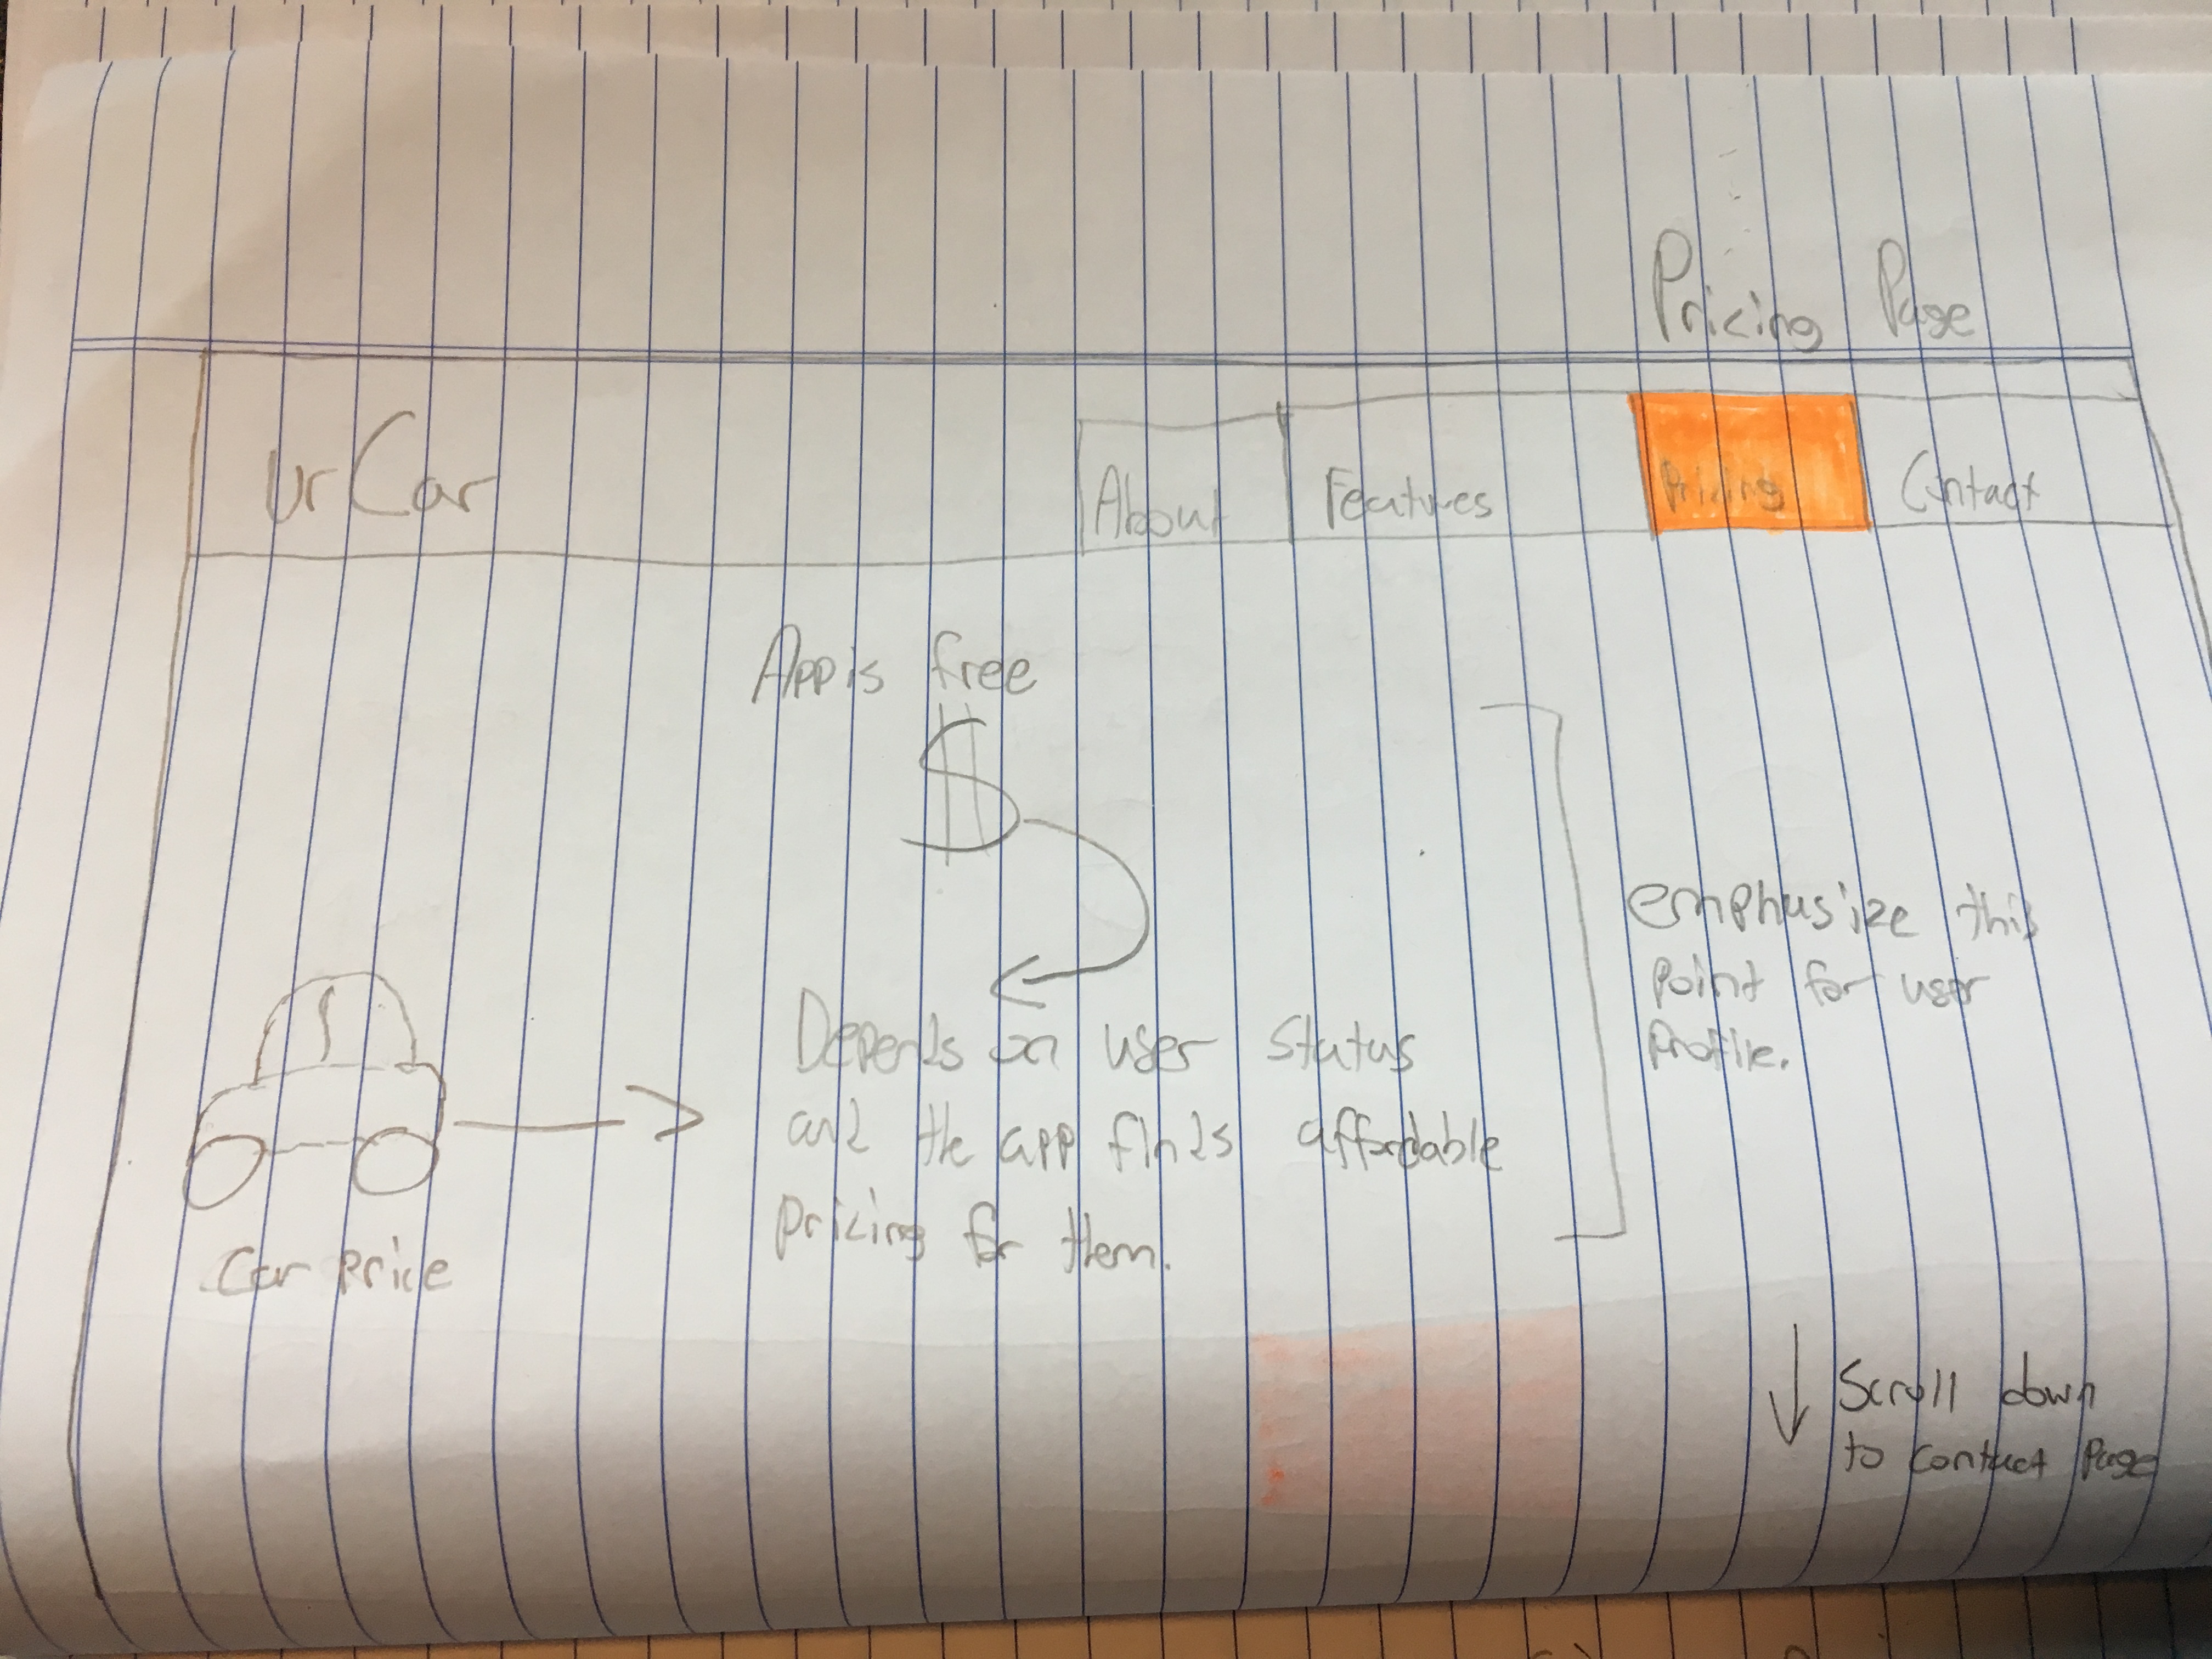 Pricing Page
Ur Car
About
Features
Pricing
Contact
App is free
$
Depends on user status
and the app finds affordable
pricing for them.
emphasize this
point for user
profile.
Car Price
Scroll down
to contact page